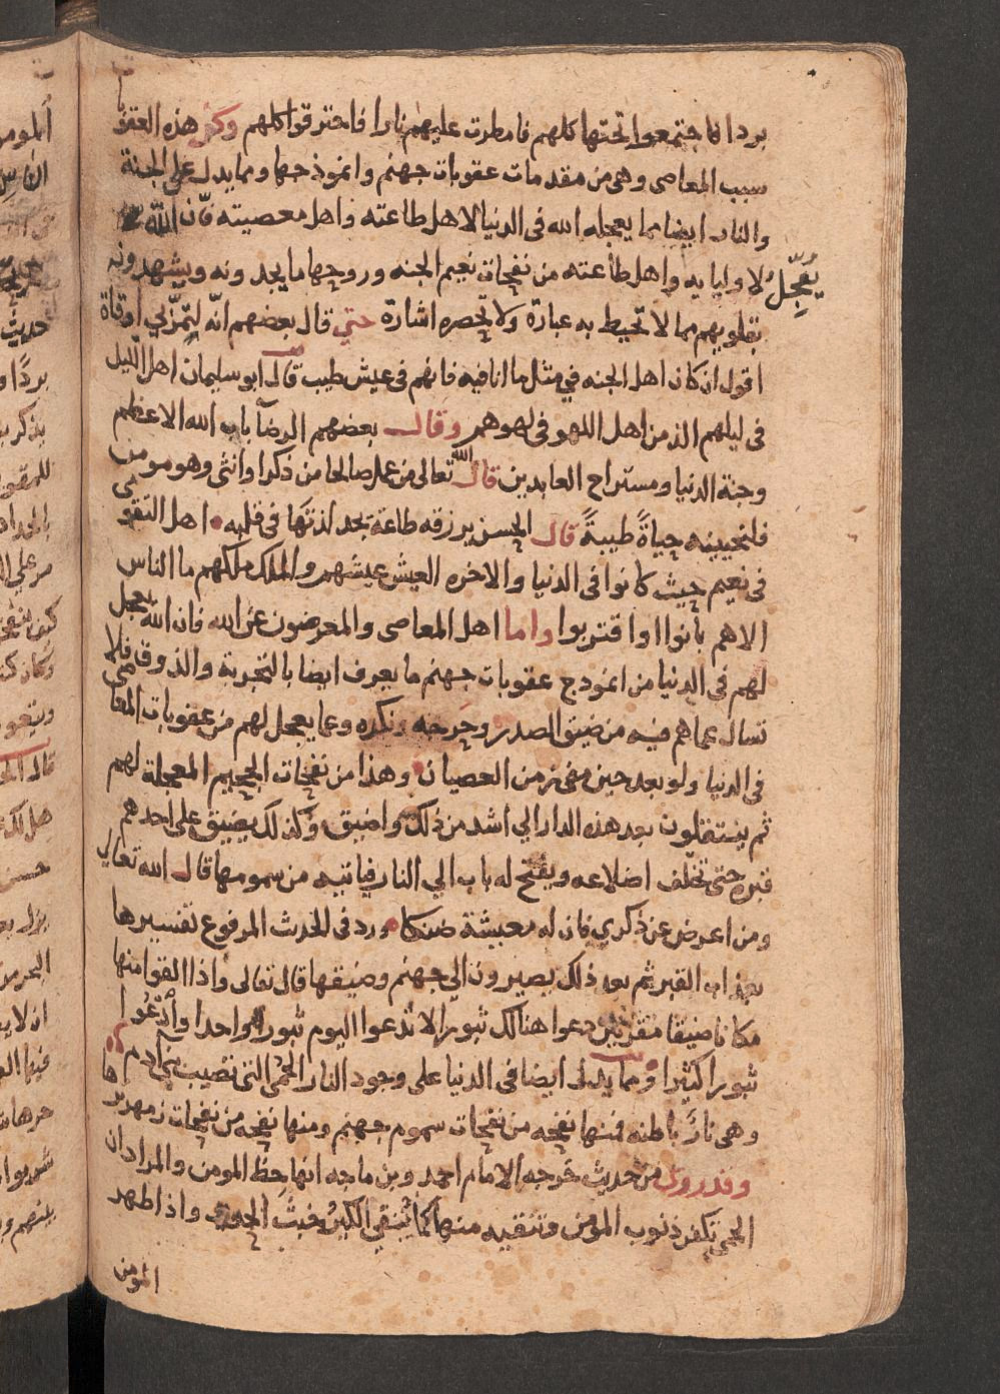 بردا فاجتمعوا تحتها كلهم فامطرت عليهم نارا فاحترقوا كلهم وكل هذه العقو
سبب المعاصى وهى من مقدمات عقوبات جهنم وانموذجها ومما يدل على الجنة
والنار ايضا مما يعجله الله فى الدنيا لاهل طاعته واهل معصيته فان الله
يُعجِّلُ لاوليايه واهل طاعته من نفحات نعيم الجنه وروحها ما يجدونه ويشهدونه
بقلوبهم مما لا تحيط به عبارة ولا تحصره اشارة حتي قال بعضهم انّه لتمرّ لي اوقاة
اقول ان كان اهل الجنه في مثل ما انا فيه فانهم فى عيش طيب قال ابو سليمان اهل الليل
فى ليلهم الذ من اهل اللهو فى لهوهم وقال بعضهم الرضا باب الله الاعظم
وجنة الدنيا ومستراح العابدين قال الله تعالى من عمل صالحا من ذكرا وانثى وهو مومن
فلنحيينه حياةً طيبةً قال الحسن يرزقه طاعة يجد لذتها فى قلبه اهل التقوى
فى نعيم حيث كانوا فى الدنيا والاخره العيش عيشهم والملك ملكهم ما الناس
الاهم بانوا او اقتربوا واما اهل المعاصى والمعرضون عن الله فان الله يعجل
لهم فى الدنيا من انموذج عقوبات جهنم ما يعرف ايضا بالتجربة والذوق فلا
تسال عماهم فيه من ضيق الصدر وحرجه ونكده وعما يعجل لهم من عقوبات المعاصى
فى الدنيا ولو بعد حين من زمن العصيان وهذا من نفحات الجحيم المعجلة لهم
ثم ينتقلون بعد هذه الدار الي اشد من ذلك واضيق وكذلك يضيق على احدهم
قبره حتى تختلف اضلاعه ويفتح له باب الي النار فياتيه من سمومها قال الله تعالي
ومن اعرض عن ذكري فان له معيشة ضنكا ورد فى الحدث المرفوع تفسيرها
بعذاب القبر ثم بعد ذلك يصيرون الي جهنم وضيقها قال تعالى واذا القوا منها
مكانا ضيقا مقرنين دعوا هنالك ثبورا لا تدعوا اليوم ثبورا واحدا وادْعُوا
ثبورا كثيرا ومما يدل ايضا فى الدنيا على وجود النار الحمى التى تصيب بنى ادم
وهى نار باطنه فمنها نفحه من نفحات سموم جهنم ومنها نفحه من نفحات زمهريرها
وقد روى من حديث خرجه الامام احمد وبن ماجه انها حظ المومن والمراد ان
الحمى تكفر ذنوب المومن وتنقيه منها كما ينقي الكير خبث الحديد واذا طهر
المومن